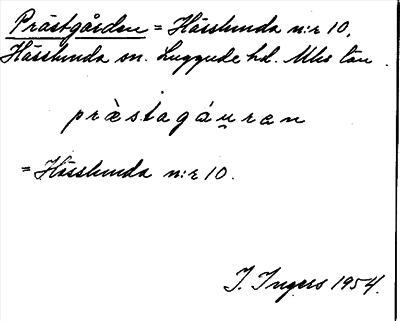 Prästgården = Hässlunda n:r 10,
Hässlunda sn. Luggude hd. Mhs län.
prὰ̈stagáu̯ran
= Hässlunda n:r 10.
I. Ingers 1954.